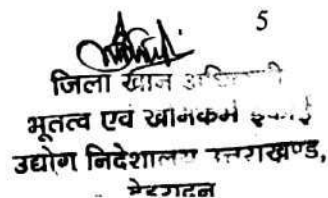 5
जिला खान
भूतत्व एवं खनिकर्म इकाई
उद्योग निदेशालय उत्तराखण्ड,
देहरादून